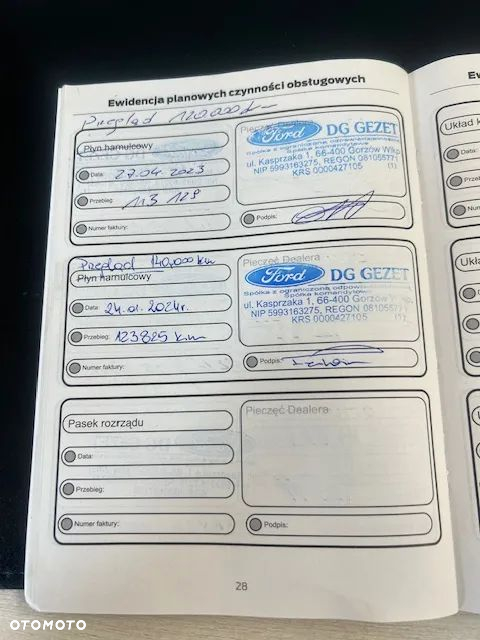 Ewidencja planowych czynności obsługowych
Przegląd 120,000
Płyn hamulcowy
Data: 27.04 2023
Przebieg: 113 129
Numer faktury:
Pieczęć Dealera
Ford DG GEZET
Spółka z ograniczoną odpowiedzialnością
Spółka komandytowa
ul. Kasprzaka 1, 66-400 Gorzów Wlkp.
NIP 5993163275, REGON 08105577
KRS 0000427105 (1)
Podpis:
Przegląd 140,000 km
Płyn hamulcowy
Data: 24.01.2024r.
Przebieg: 123825 km
Numer faktury:
Pieczęć Dealera
Ford DG GEZET
Spółka z ograniczoną
Spółka komandytowa
ul. Kasprzaka 1, 66-400 Gorzów Wlkp.
NIP 5993163275, REGON 08105577
KRS 0000427105 (1)
Podpis:
Pasek rozrządu
Data:
Przebieg:
Numer faktury:
Pieczęć Dealera
Podpis:
28
Układ
Data:
OTOMOTO